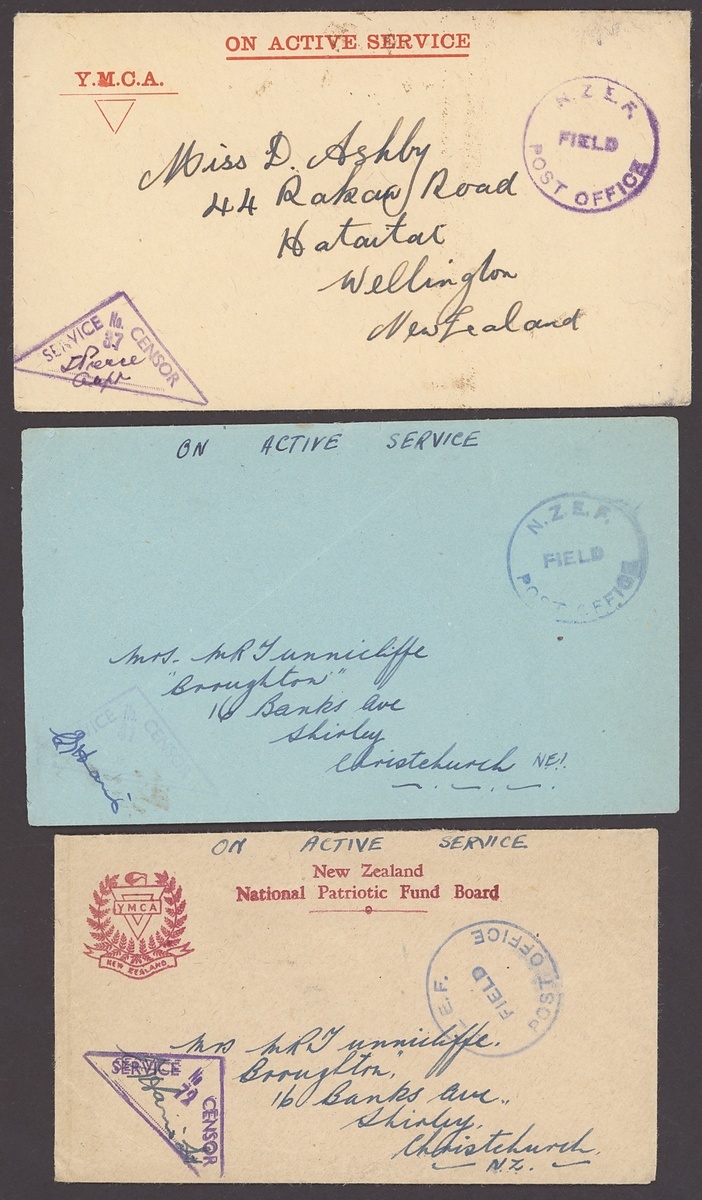 ON ACTIVE SERVICE
Y.M.C.A.
N.Z.E.F.
FIELD
POST OFFICE
Miss D. Ashby
44 Rakau Road
Hataitai
Wellington
New Zealand
SERVICE No. CENSOR
37
Pierce
Capt
ON ACTIVE SERVICE
N.Z.E.F.
FIELD
POST OFFICE
Mrs. M R Tunnicliffe
"Broughton"
16 Banks Ave
Shirley
Christchurch NZ.
ICE No. CENS
ON ACTIVE SERVICE
New Zealand
National Patriotic Fund Board
YMCA
NEW ZEALAND
E.F.
FIELD
POST OFFICE
Mrs M R Tunnicliffe.
Broughton,
16 Banks Ave.,
Shirley,
Christchurch,
N.Z.
SERVICE No. CENSOR
72